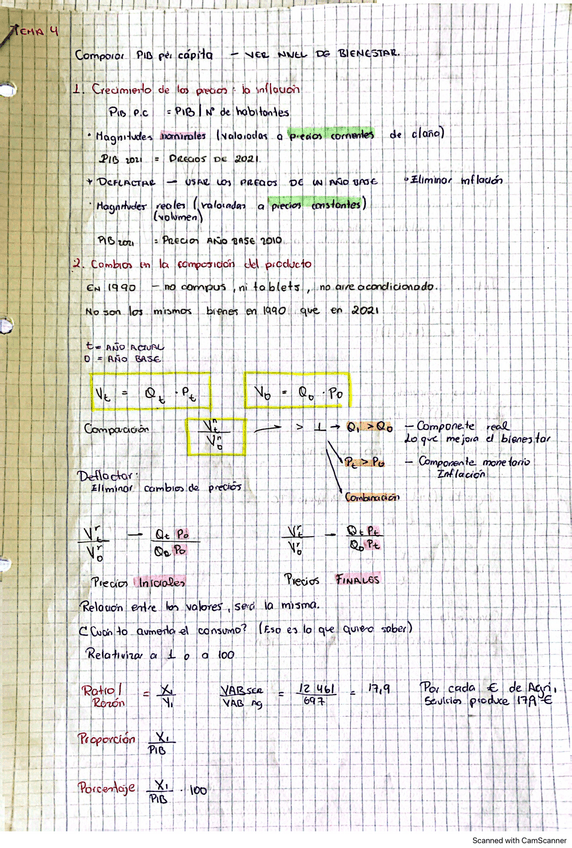 TEMA 4
Comparar PIB per cápita — VER NIVEL DE BIENESTAR.
1. Crecimiento de los precios: la inflación
PIB P.C = PIB / Nº de habitantes
• Magnitudes nominales (valoradas a precios corrientes de c/año)
PIB 2021 = PRECIOS DE 2021
* DEFLACTAR — USAR LOS PRECIOS DE UN AÑO BASE • Eliminar inflación
• Magnitudes reales (valoradas a precios constantes)
(volumen)
PIB 2021 = PRECIOS AÑO BASE 2010
2. Cambios en la composición del producto
EN 1990 — no compus, ni tablets, no aire acondicionado.
No son los mismos bienes en 1990 que en 2021
t = AÑO ACTUAL
0 = AÑO BASE
Vt = Qt · Pt V0 = Q0 · P0
Comparación Vt^n / V0^n → > 1 → Q1 > Q0 — Componete real
Lo que mejora el bienestar
Pt > P0 — Componente monetario
Inflación
Combinación
Deflactar:
Eliminar cambios de precios
Vt^r / V0^r — Qt P0 / Q0 P0 Vt^r / V0^r — Qt Pt / Q0 Pt
Precios Iniciales Precios FINALES
Relación entre los valores, será la misma.
¿Cuánto aumenta el consumo? (Eso es lo que quiero saber)
Relativizar a 1 o a 100
Ratio / Razón = X1 / Y1 VAB sce / VAB Ag = 12 461 / 697 = 17,9 Por cada € de Agri,
Servicios produce 17,9 €
Proporción X1 / PIB
Porcentaje X1 / PIB · 100
Scanned with CamScanner